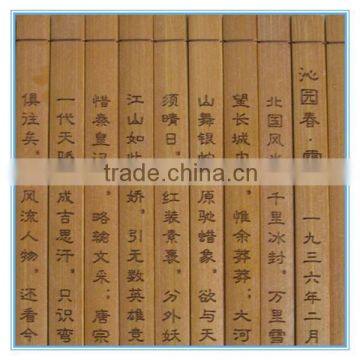 沁园春·雪 一九三六年二月
北国风光。千里冰封。万里雪
望长城内 惟余莽莽；大河
山舞银蛇 原驰蜡象。欲与天
须晴日。红装素裹。分外妖
江山如此 娇。引无数英雄竞
惜秦皇汉 略输文采；唐宗
一代天骄 成吉思汗。只识弯
俱往矣。风流人物。还看今